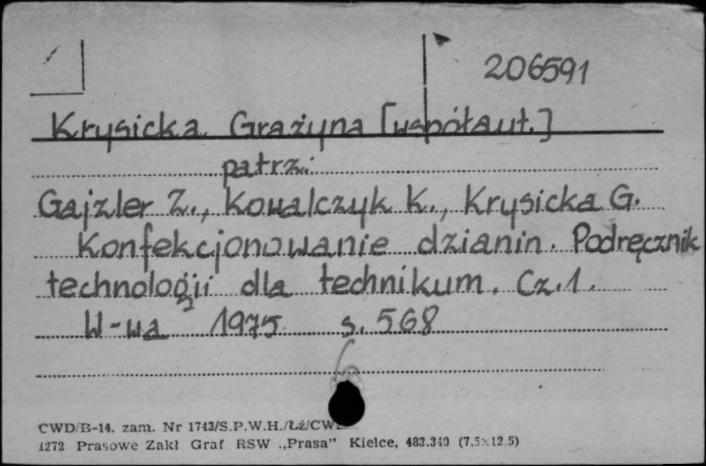 206591
Krysicka Grażyna [współaut.]
patrz:
Gajzler Z., Kowalczyk K., Krysicka G.
Konfekcjonowanie dzianin. Podręcznik
technologii dla technikum. Cz.1.
W-wa 1975 s. 568
CWD/B-14. zam. Nr 1743/S.P.W.H./Łż/CW
1272 Prasowe Zakł Graf RSW „Prasa" Kielce, 483.340 (7.5×12.5)